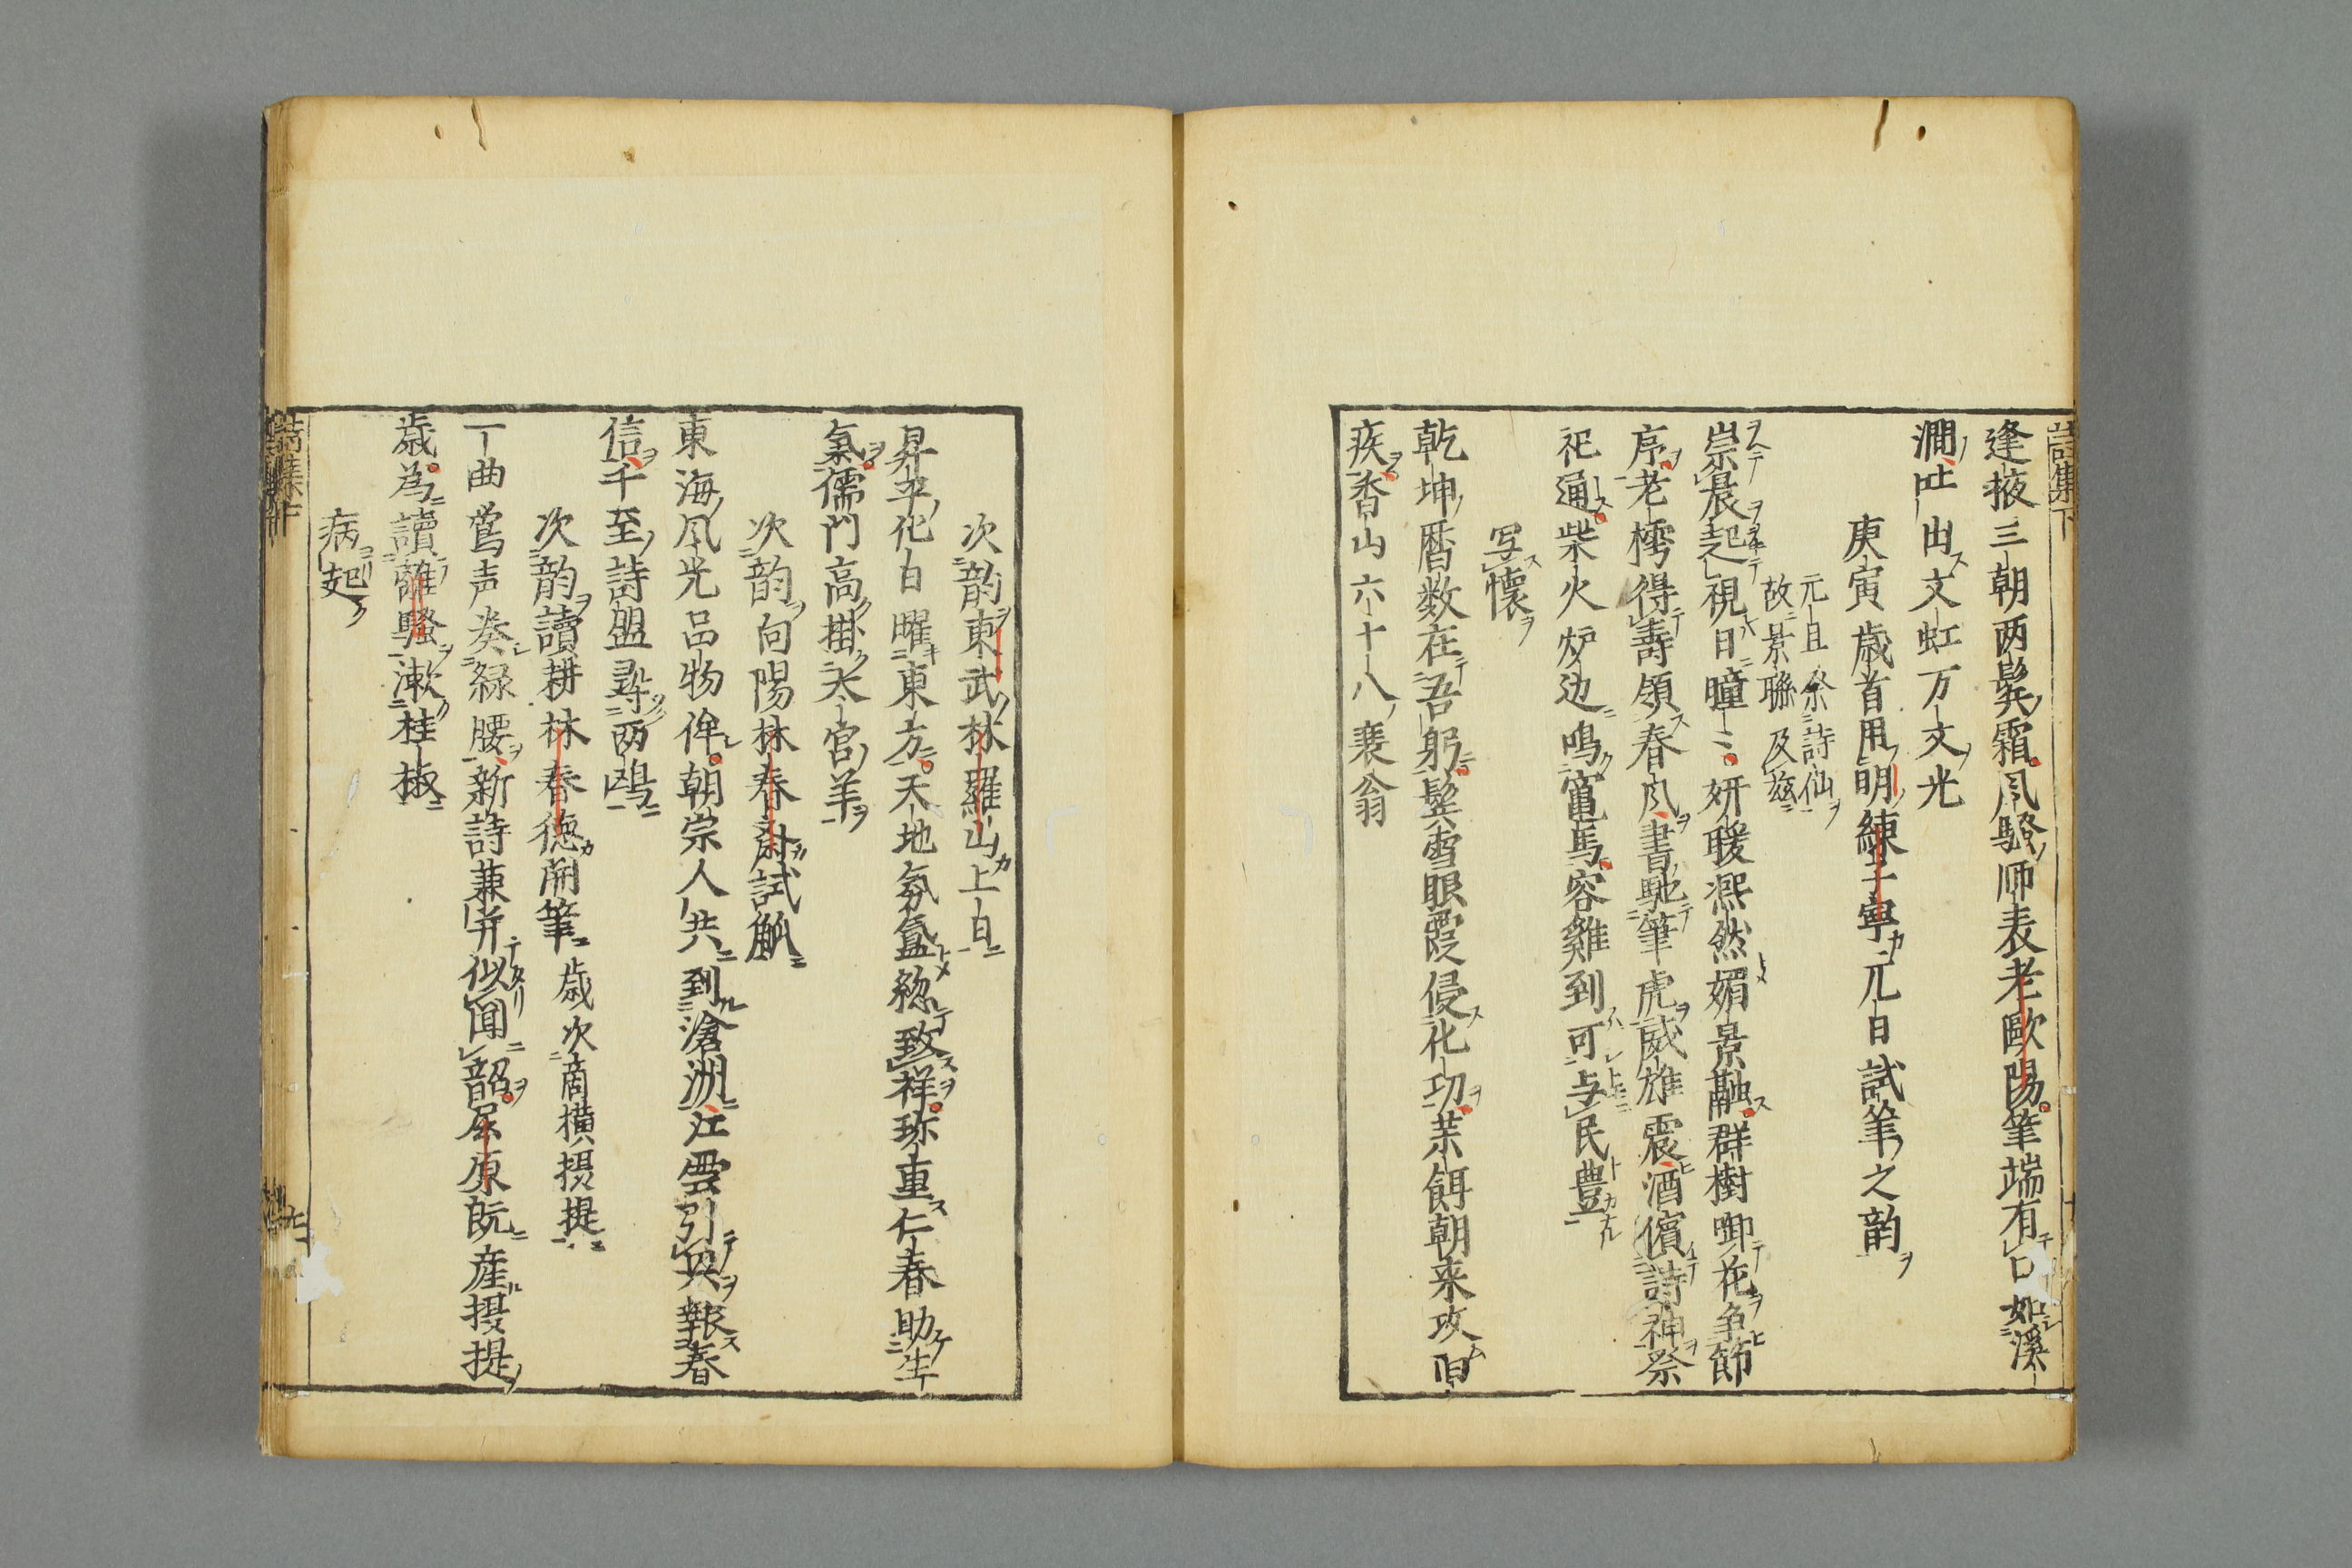 詩集下
逢掖三朝两鬂霜風騷師表老歐陽筆端有口如溪
澗吐出文虹万丈光
庚寅歳首用明練子寧元日試筆之韵
元旦祭詩仙
故景聯及茲
崇晨起視日曈〻妍暖凞然媚景融群樹啣花争節
序老樗得壽領春風書馳筆虎威雄震酒償詩神祭
祀通柴火炉边鳴竃馬容雞到可与民豊
写懷
乾坤暦数在吾躬鬂雪眼霞侵化功茶餌朝来攻旧
疾香山六十八衰翁
次韵東武林羅山上日
昇平化日曜東方天地氛氲総致祥珎重仁春助生
氣儒門高掛太官羊
次韵向陽林春齋試觚
東海風光品物侔朝宗人共到滄洲江雲引興報春
信千至詩盟尋两鴎
次韵讀耕林春徳開筆歳次商横摂提
一曲鶯声奏緑腰新詩兼并似聞韶屈原既産摂提
歳為讀離騷漱桂椒
病起